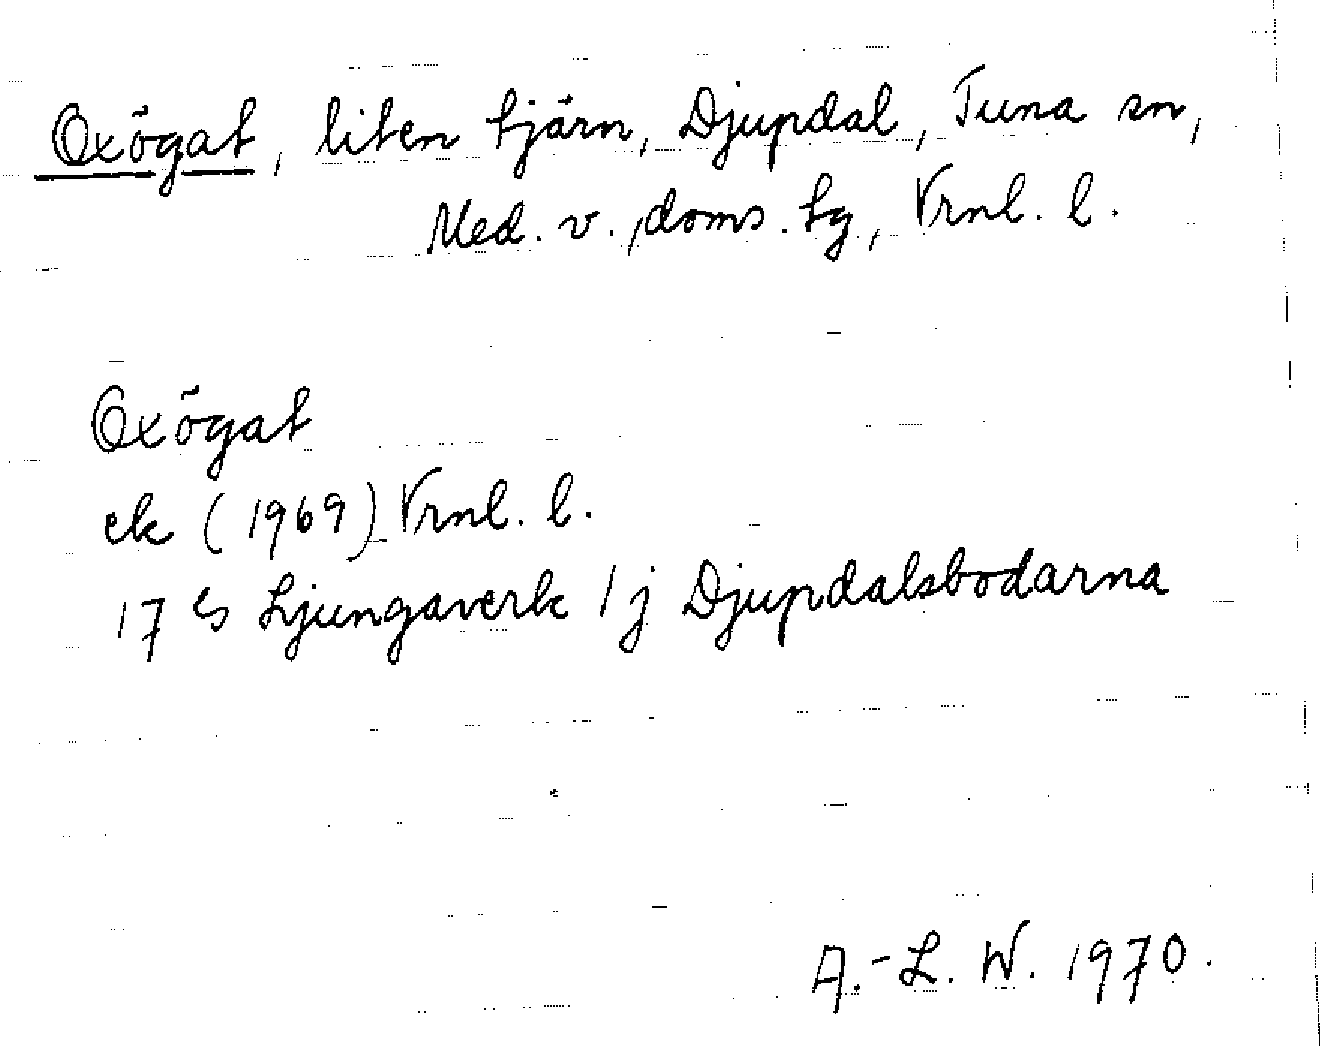 Oxögat, liten tjärn, Djupdal, Tuna sn,
Med. v. doms. tg, Vrnl. l.
Oxögat
ek (1969) Vrnl. l.
17 G Ljungaverk 1 j Djupdalsbodarna
A.-L. W. 1970.